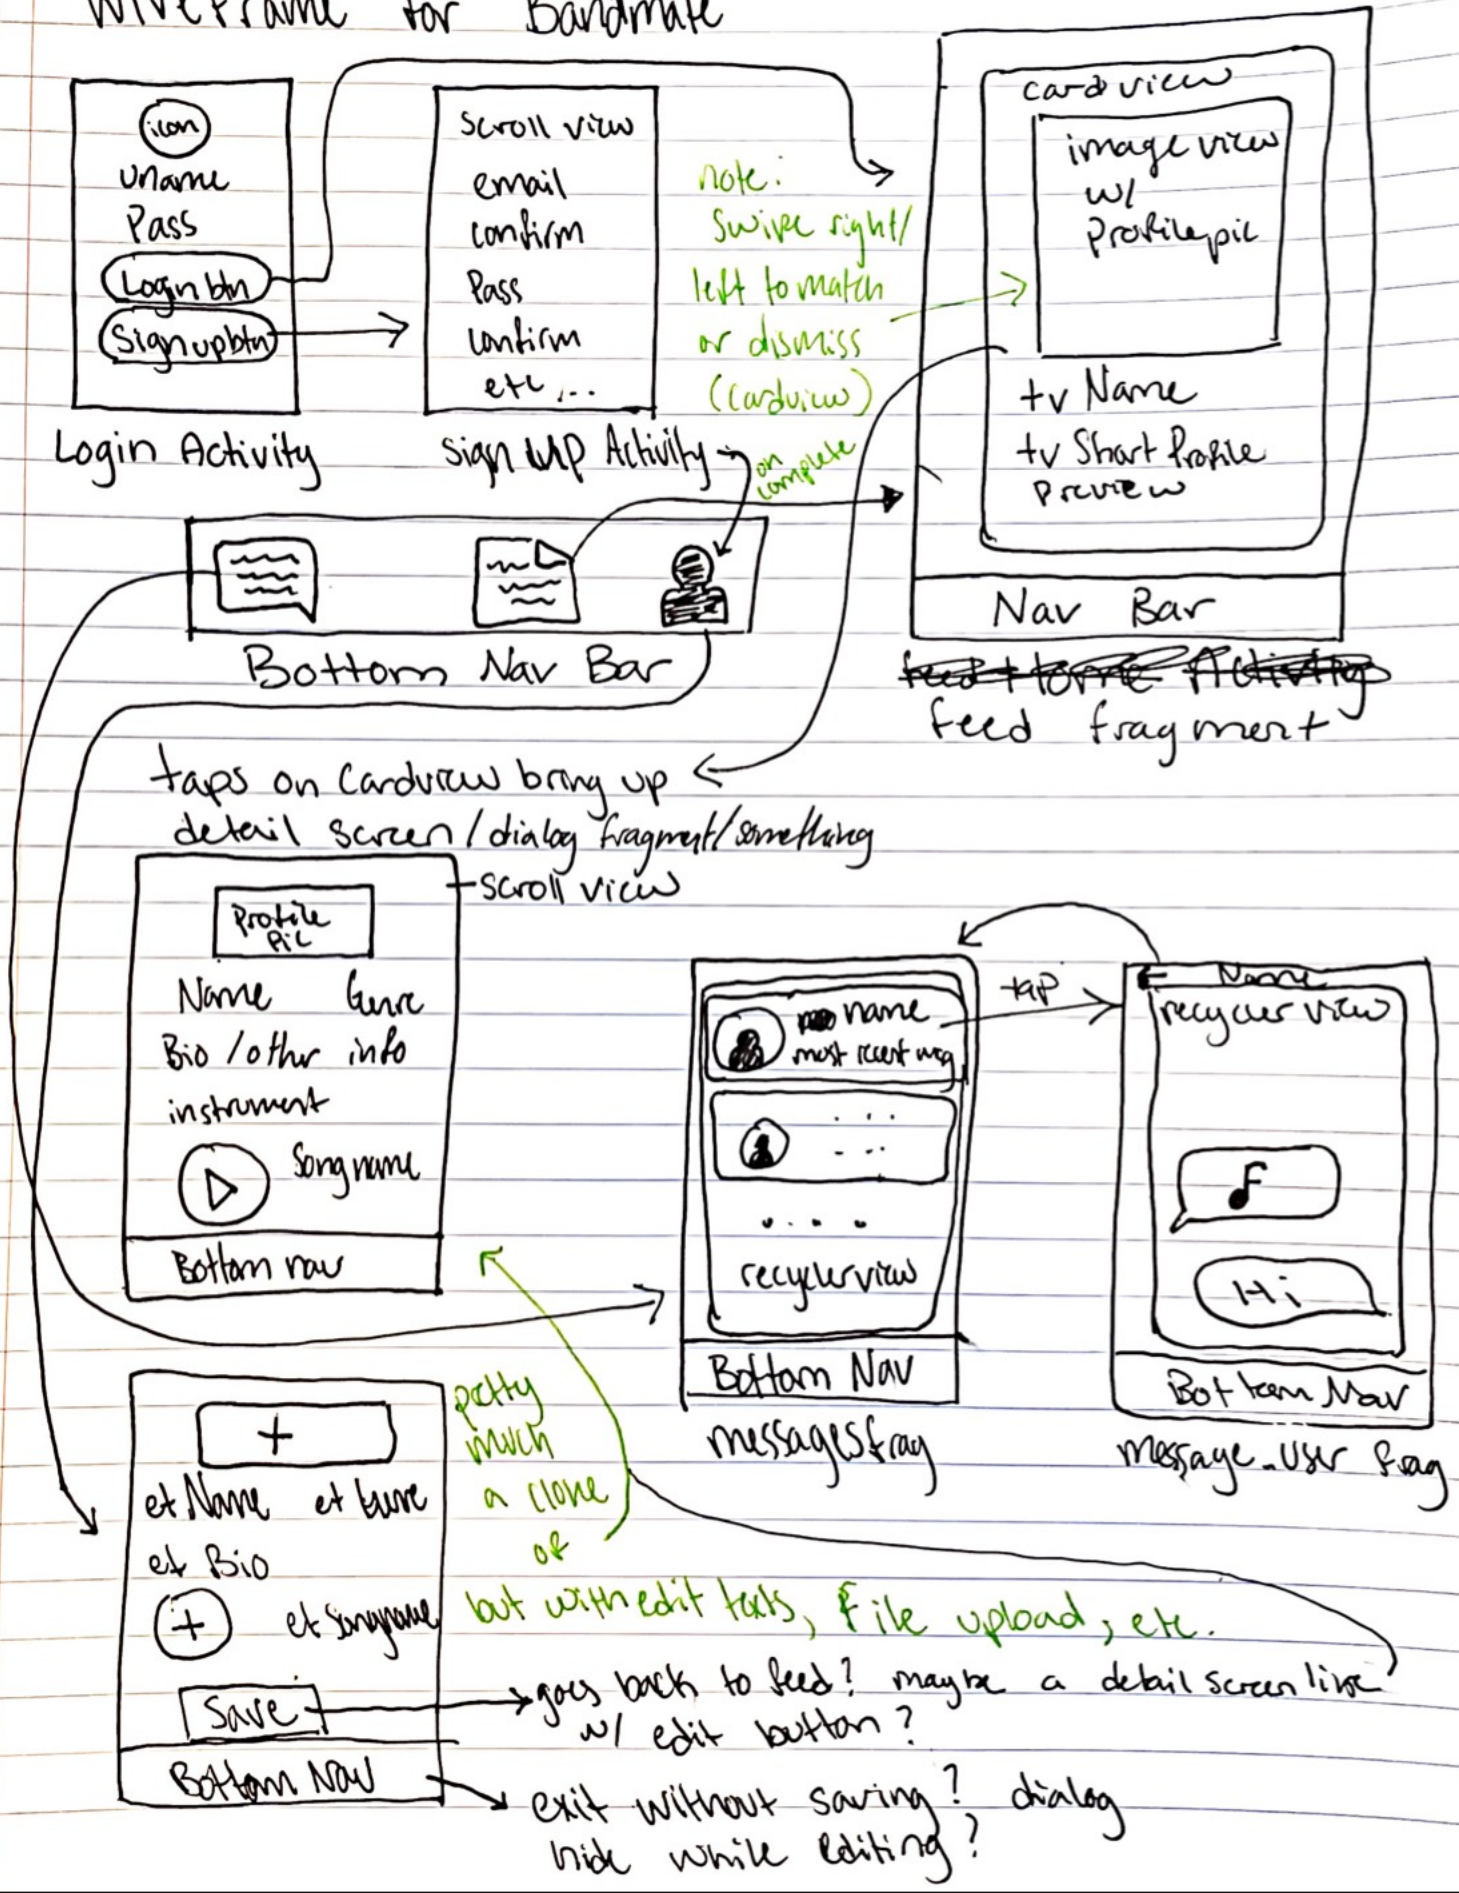 Wireframe for Bandmate
icon
uname
Pass
Login btn
Sign up btn
Login Activity
Scroll view
email
confirm
Pass
confirm
etc...
Sign Up Activity
on
complete
note:
Swipe right/
left to match
or dismiss
(cardview)
cardview
imageview
w/
Profile pic
tv Name
tv Short Profile
Preview
Nav Bar
feed fragment
Bottom Nav Bar
taps on Cardview bring up
detail screen/dialog fragment/something
scroll view
Profile
Pic
Name Genre
Bio/other info
instrument
Song name
Bottom nav
name
most recent msg
recyclerview
Bottom Nav
messages frag
tap
Name
recycler view
Hi
Bottom Nav
message_user frag
+
et Name et Genre
et Bio
+ et Songname
Save
Bottom Nav
pretty
much
a clone
of
but with edit texts, file upload, etc.
goes back to feed? maybe a detail screen like
w/ edit button?
exit without saving? dialog
hide while editing?